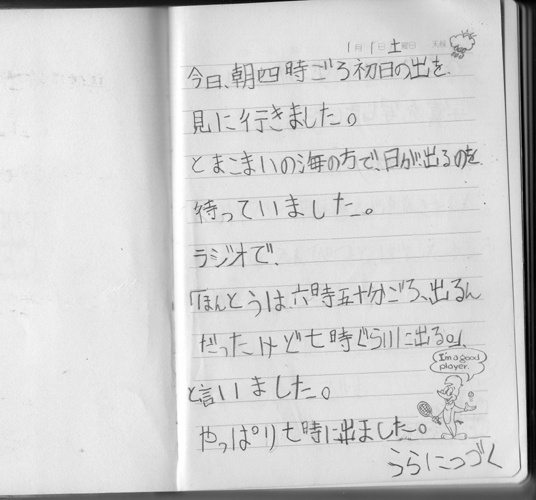 1月1日土曜日 天候
今日、朝四時ごろ初日の出を
見に行きました。
とまこまいの海の方で、日が出るのを
待っていました。
ラジオで、
「ほんとうは六時五十分ごろ、出るん
だったけど七時ぐらいに出る。」
と言いました。
I'm a good
player.
やっぱり七時に出ました。
うらにつづく